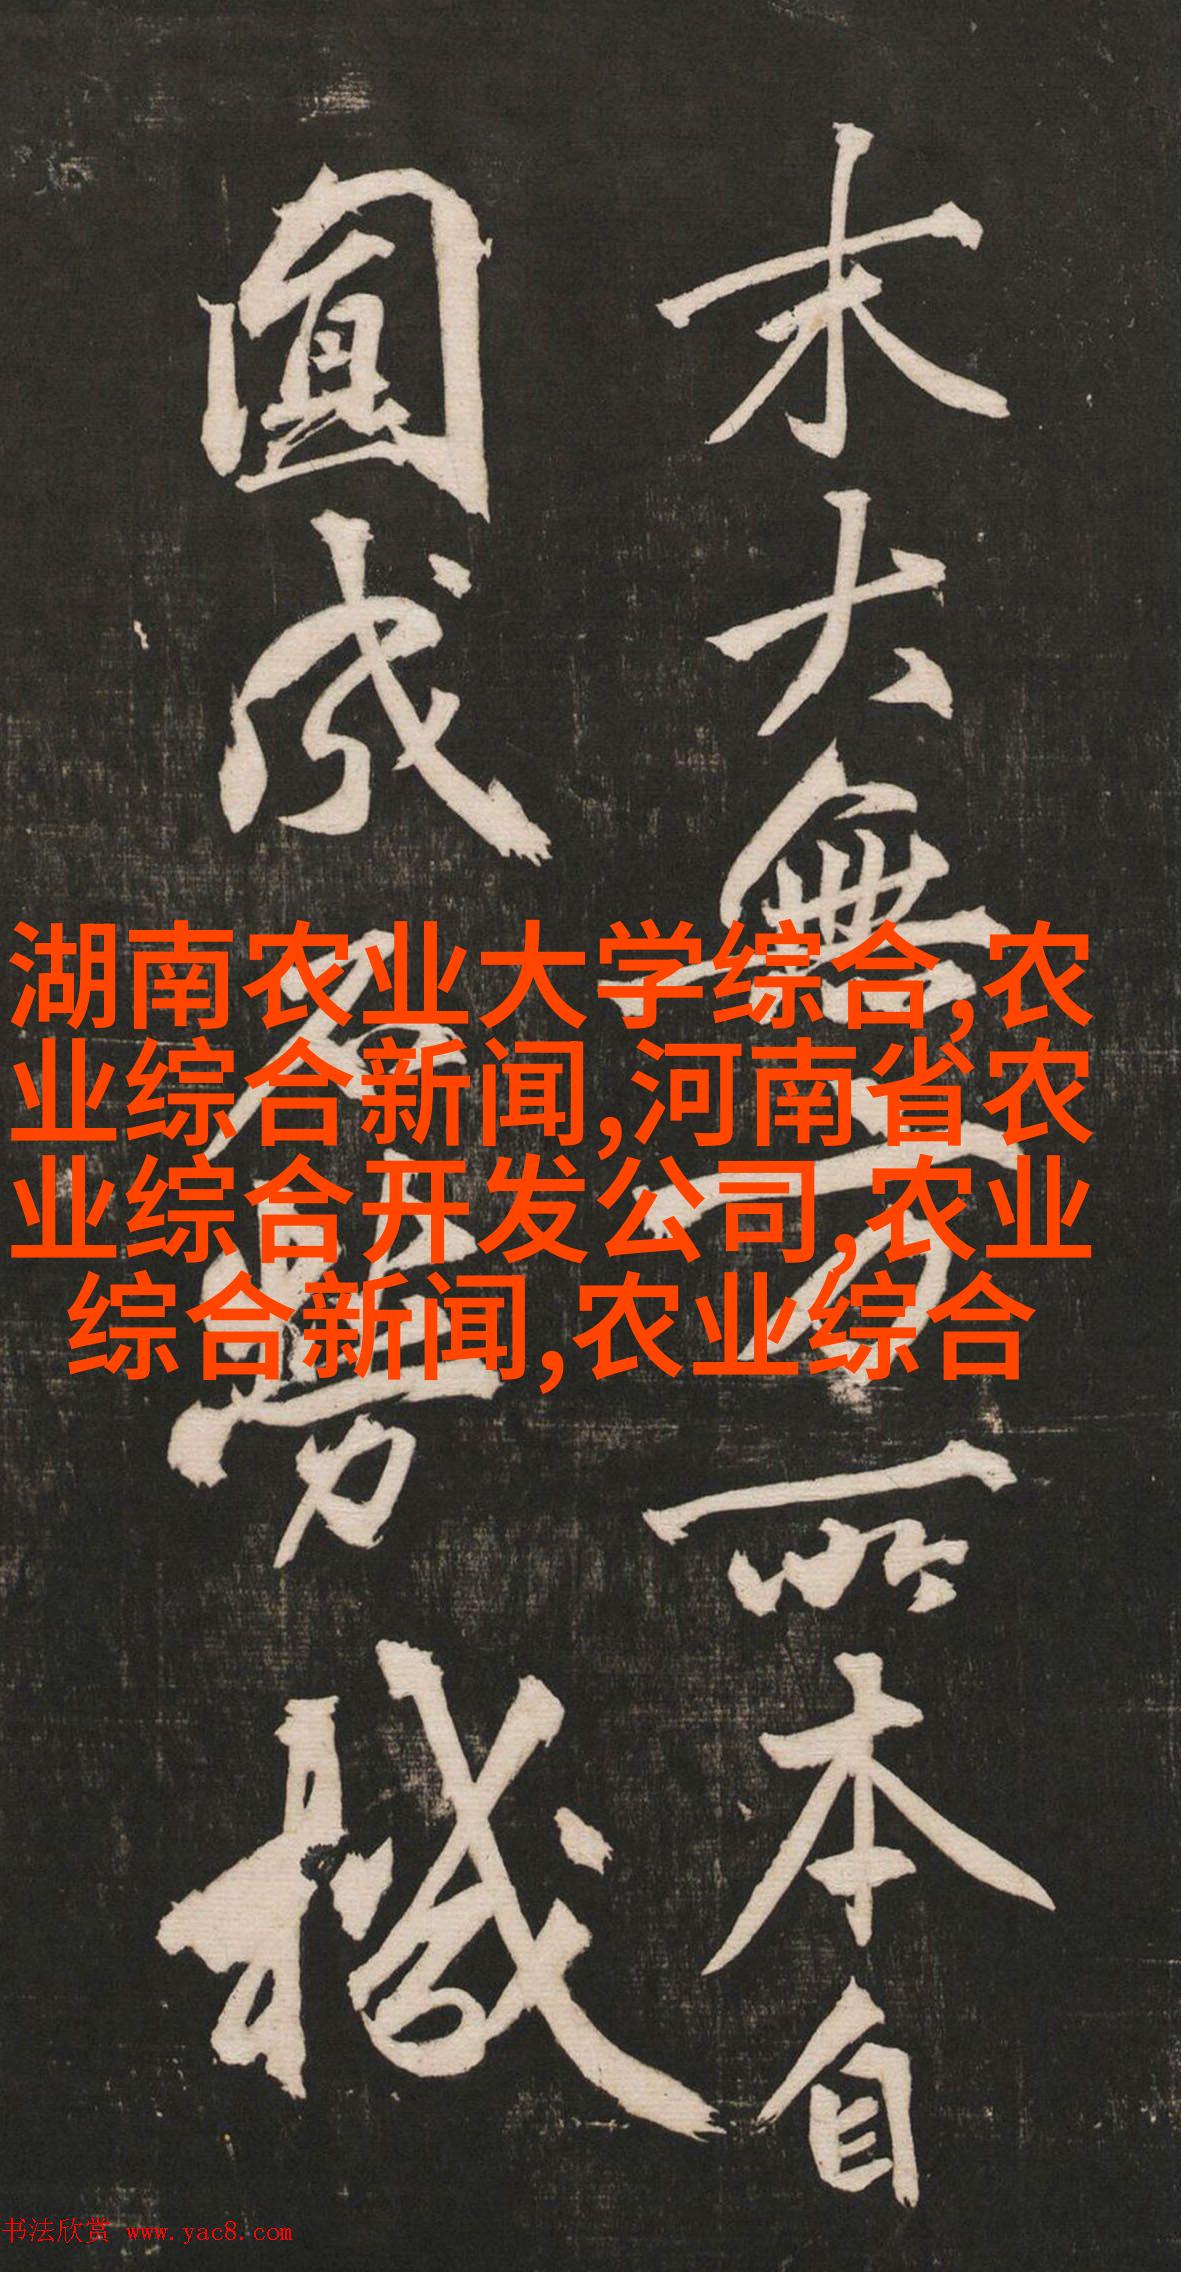 末大無方所本自
圓成勞機
湖南农业大学综合,农
业综合新闻,河南省农
业综合开发公司,农业
综合新闻,农业综合
书法欣赏 www.yac8.com